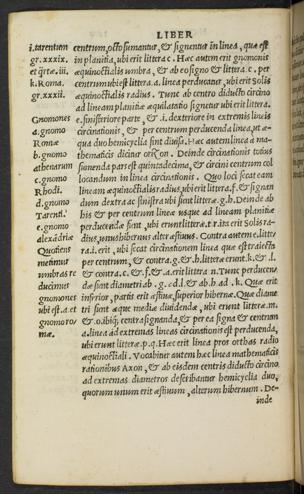 LIBER
i. tarentum
gr. xxxix.
et q̃rtæ. iii.
k. Roma.
gr. xxxii.
Gnomones
a. gnomo
Romæ
b. gnomo
athenarum
c. gnomo
Rhodi.
d. gnomo
Tarenti.
e. gnomo
alexãdriæ
Quotiens
metimur
umbras re
ducimus
gnomones
ubi est. a. et
gnomoro/
mæ.
centrum, octo sumantur, & signentur in linea, quæ est
in planitia, ubi erit littera c. Hæc autem erit gnomonis
æquinoctialis umbra, & ab eo signo & littera. c. per
centrum ubi est littera. a. linea perducatur, ubi erit Solis
æquinoctialis radius. Tunc ab centro diducto circino
ad lineam planitiæ æquilatatio signetur ubi erit littera.
e. sinisteriore parte, & .i. dexteriore in extremis lineis
circinationis, & per centrum perducenda linea, ut æ/
qua duo hemicyclia sint diuisa. Hæc autem linea á ma/
thematicis dicitur oriʒon. Deinde circinationis totius
sumenda pars est quintadecima, & circini centrum col
locandum in linea circinationis. Quo loci secat eam
lineam æquinoctialis radius, ubi erit littera. f. & signan
dum dextra ac sinistra ubi sunt litteræ. g. h. Deinde ab
his & per centrum lineæ usque ad lineam planitiæ
perducendæ sunt, ubi erunt litteræ. t. r. ita erit Solis ra/
dius, unus hibernus alter æstiuus. Contra autem e. litte/
ra. i. erit, ubi secat circinationem linea quæ est traiecta
per centrum, & contra. g. & .h. litteræ erunt. k. & .l.
& contra. c. & .f. & .a. erit littera n. Tunc perducen/
dæ sunt diametri ab .g. ad .l. & ab .h. ad .k. Quæ erit
inferior, partis erit æstiuæ, superior hibernæ. Quæ diame
tri sunt æque mediæ diuidendæ, ubi erunt litteræ. m.
& .o. ibiq; centra signanda, & per ea signa & centrum
a. linea ad extremas lineas circinationis est perducenda,
ubi erunt litteræ. p. q. Hæc erit linea pros orthas radio
æquinoctiali. Vocabitur autem hæc linea mathematicis
rationibus Axon, & ab eisdem centris diducto circino
ad extremas diametros describantur hemicyclia duo,
quorum unum erit æstiuum, alterum hibernum. De/
inde